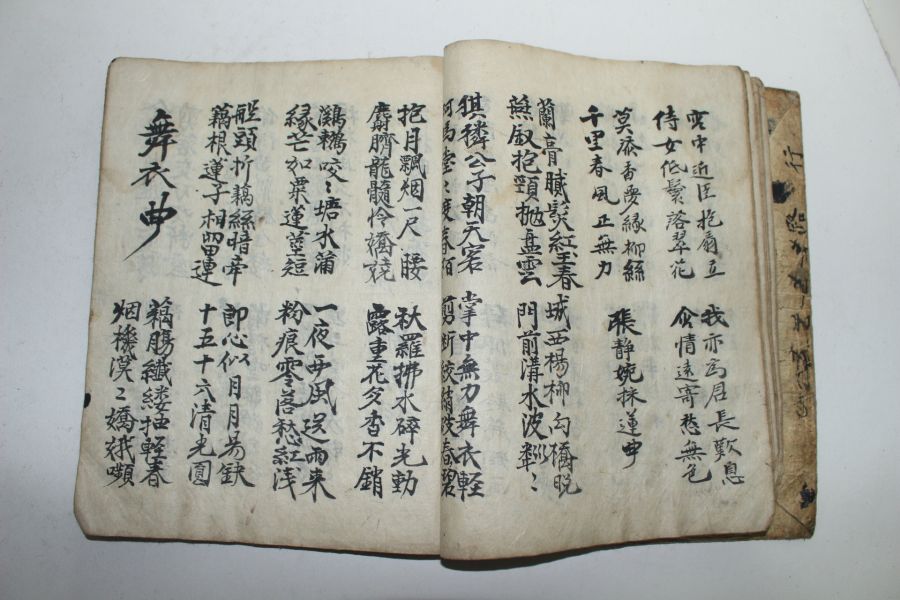 宮中近臣抱扇立
侍女低鬟落翠花
我亦為君長歎息
含情遠寄愁無色
莫沾香夢緣柳絲
千里春風正無力
張静婉採蓮曲
蘭膏膩髮紅玉春
燕釵抱頸抛盤雲
城西楊柳勾橋晚
門前溝水波粼〻
猉獜公子朝天客
珂馬堂〻度春陌
掌中無力舞衣輕
剪斷鮫綃破春碧
抱月飄烟一尺腰
麝臍龍髓怜嬌嬈
秋羅拂水碎光動
露重花多香不銷
鸂鶒咬〻塘水蒲
緑芒如粟蓮莖短
一夜西風送雨来
粉痕零落愁紅浅
舡頭折藕絲暗牽
藕根蓮子相留連
郎心似月月易缺
十五十六清光圓
舞衣曲
藕腸纖縷抽輕春
烟機漠〻嬌娥嚬